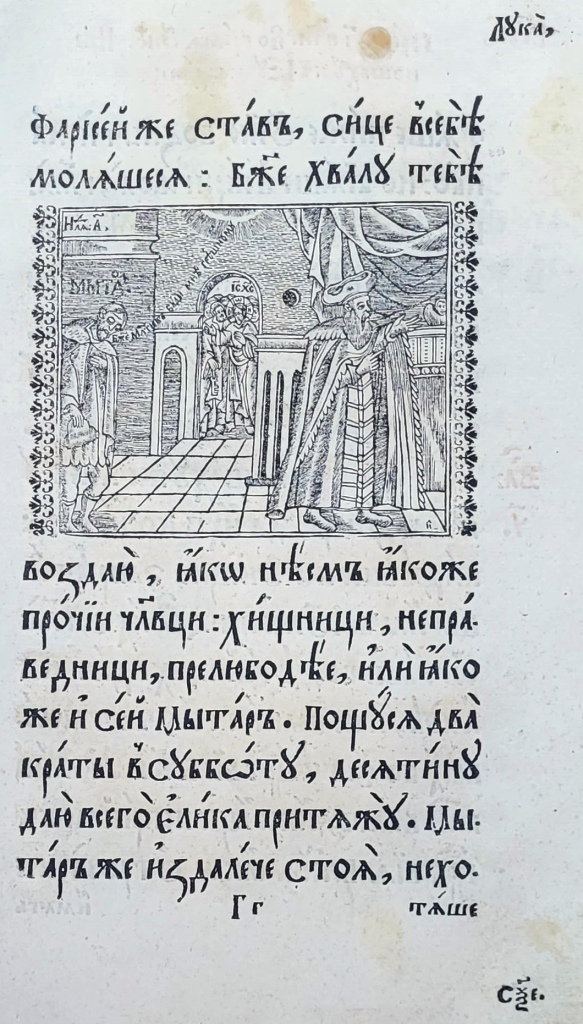 Лꙋка̀,
Фарїсе́й же ста́въ, си́це в̾себѣ̀
молѧ́шесѧ : Бж҃е хвалꙋ̀ тебѣ̀
воздаю̀, ꙗ҆́кѡ нѣ́смъ ꙗ҆́коже
про́чїи чл҃вци : хи́щницы, непра́-
ведницы, прелюбодѣ́е, и҆лѝ ꙗ҆́ко
же и҆ се́й Мыта́ръ . Пощꙋ́сѧ два̀
кра́ты в̾ сꙋббѡ́тꙋ, десѧти́нꙋ
даю̀ всегѡ̀ є҆ли́ка притѧжꙋ̀ . Мы-
та́ръ же и҆здале́че стоѧ̀, нехо-
Гг
тѧ́ше